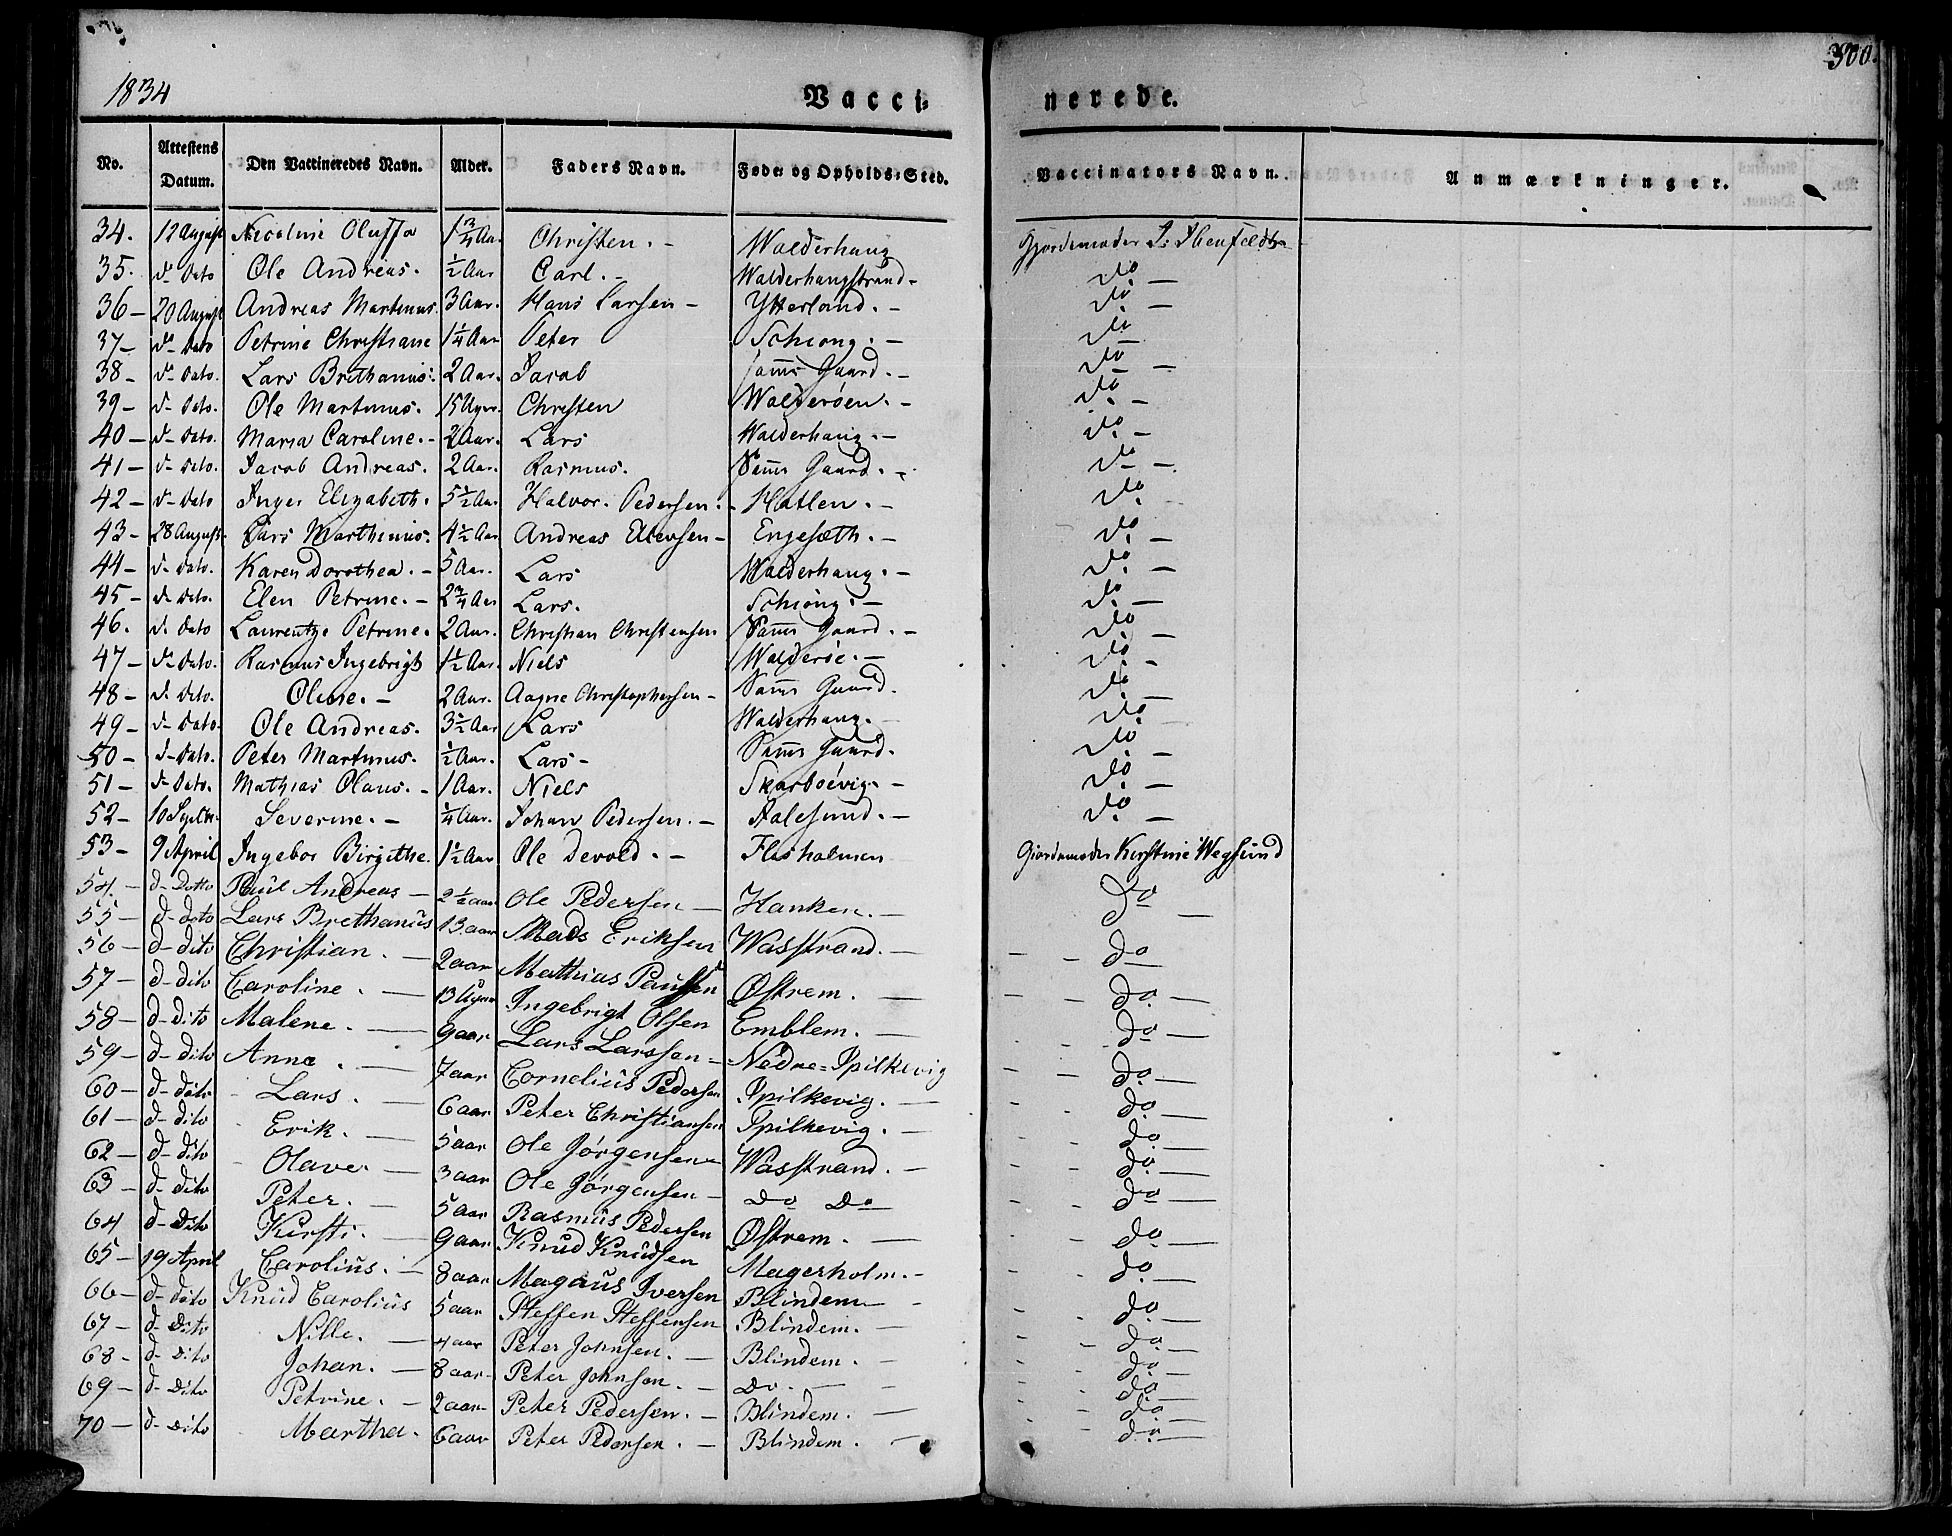 1834
Vacci=
nerede.
300.
No. Attestens Datum. Den Vaccineredes Navn. Alder. Faders Navn. Føde= og Opholds=Sted. Vaccinators Navn. Anmærkninger.
34. 12 August Nicoline Oluffa 1 3/4 Aar Christen. - Walderhaug Gjordemoder
35. d- Dato Ole Andreas. 1/2 Aar Carl. - Walderhaugstrand - do -
36 - 20 August Andreas Martinus. 3 Aar. Hans Larsen - Ytterland. - do -
37 - d- Dato Petrine Christiane 1 1/4 Aar Peter Schiong. - do -
38 - d- Dato. Lars Brethanius. 2 Aar. Jacob Sams Gaard. - do -
39 - d- Dato. Ole Martinus. 15 Uger. Christen Walderøen. - do -
40 - d- Dato. Maria Caroline. - 2 Aar. Lars Walderhaug. - do -
41 - d- Dato. Jacob Andreas. 2 Aar. Rasmus. Sams Gaard. - do -
42 - d- Dato Inger Elizabeth. 5 1/2 Aar Halvor Pedersen. - Hatlen. - do -
43 - 28 August. Lars Marthinus. 4 1/2 Aar Andreas Ellevsen - Engesæth. - do -
44 - d- Dato. Karen Dorothea. - 5 Aar. Lars Walderhaug. - do -
45 - d- Dato. Elen Petrine. - 2 3/4 Aar Lars. Schiong. - do -
46. d. Dato Laurentze Petrine. 2 Aar. Christian Christensen Sams Gaard. - do -
47 - d- Dato. Rasmus Ingebrigt 1 1/2 Aar. Niels Walderøe. - do -
48 - d. Dato. Oline. - 2 Aar. Aagne Christophersen - Sams Gaard. do -
49 - d- Dato. Ole Andreas. 3 1/2 Aar Lars Walderhaug. - do -
50 - d- Dato. Peter Martinus. 1/2 Aar. Lars - Sams Gaard. do -
51 - d- Dato. Mathias Olaus. - 1 Aar. Niels Skarboevig. - do -
52 - 10 Septbr. Severine. - 1/4 Aar. Johan Pedersen. - Aalesund. - do -
53 - 9 April Ingebor Birgithe. 1 1/2 Aar Ole Devold. - Flisholmen Giordemoder Kirstine Wegsund
54. - d- Datto Paul Andreas - 2 1/2 aar Ole Pedersen - Hanken. - do -
55 - d- dato Lars Brethanius 13 aar Mads Eriksen Wasstrand. - do
56 - d- dito Christian. - 2 aar Mathias Paulsen Østrem. - do -
57 - d- dito Caroline. - 13 Uger Ingebrigt Olsen Emblem. - do -
58 - d- Dito Malene. - 9 aar Lars Larssen - Nedre=Spilkevig do -
59 - d- dito Anna. - 7 aar Cornelius Pedersen Spilkevig. - do -
60 - d- dito Lars. - 6 aar Peter Christiansen Spilkevig. - do -
61 - d- dito Erik. - 5 aar Ole Jørgensen Wasstrand. - do -
62 - d- dito Olave. - 3 aar Ole Jørgensen - do Do do -
63 - d- dito Peter. - 5 aar Rasmus Pedersen Østrem. - do -
64 - d- Dito Kirsti. - 9 aar Knud Knudsen Magerholm. - do -
65 - 19 April Carolius. - 8 aar Magnus Iversen Blindem - do -
66 - d- dito Knud Carolius 5 aar Steffen Steffensen Blindem. - do -
67 - d- Dito Nille. - 4 aar Peter Johnsen. - Blindem. - do -
68 - d- Dito Johan. - 8 aar - Peter Johnsen. - Do. - do -
69 - d- Dito Petrine. - 2 aar - Peter Pedersen. - Blindem. - do -
70 - d- Dito Martha. 6 aar Peter Pedersen. - Blindem. - do -